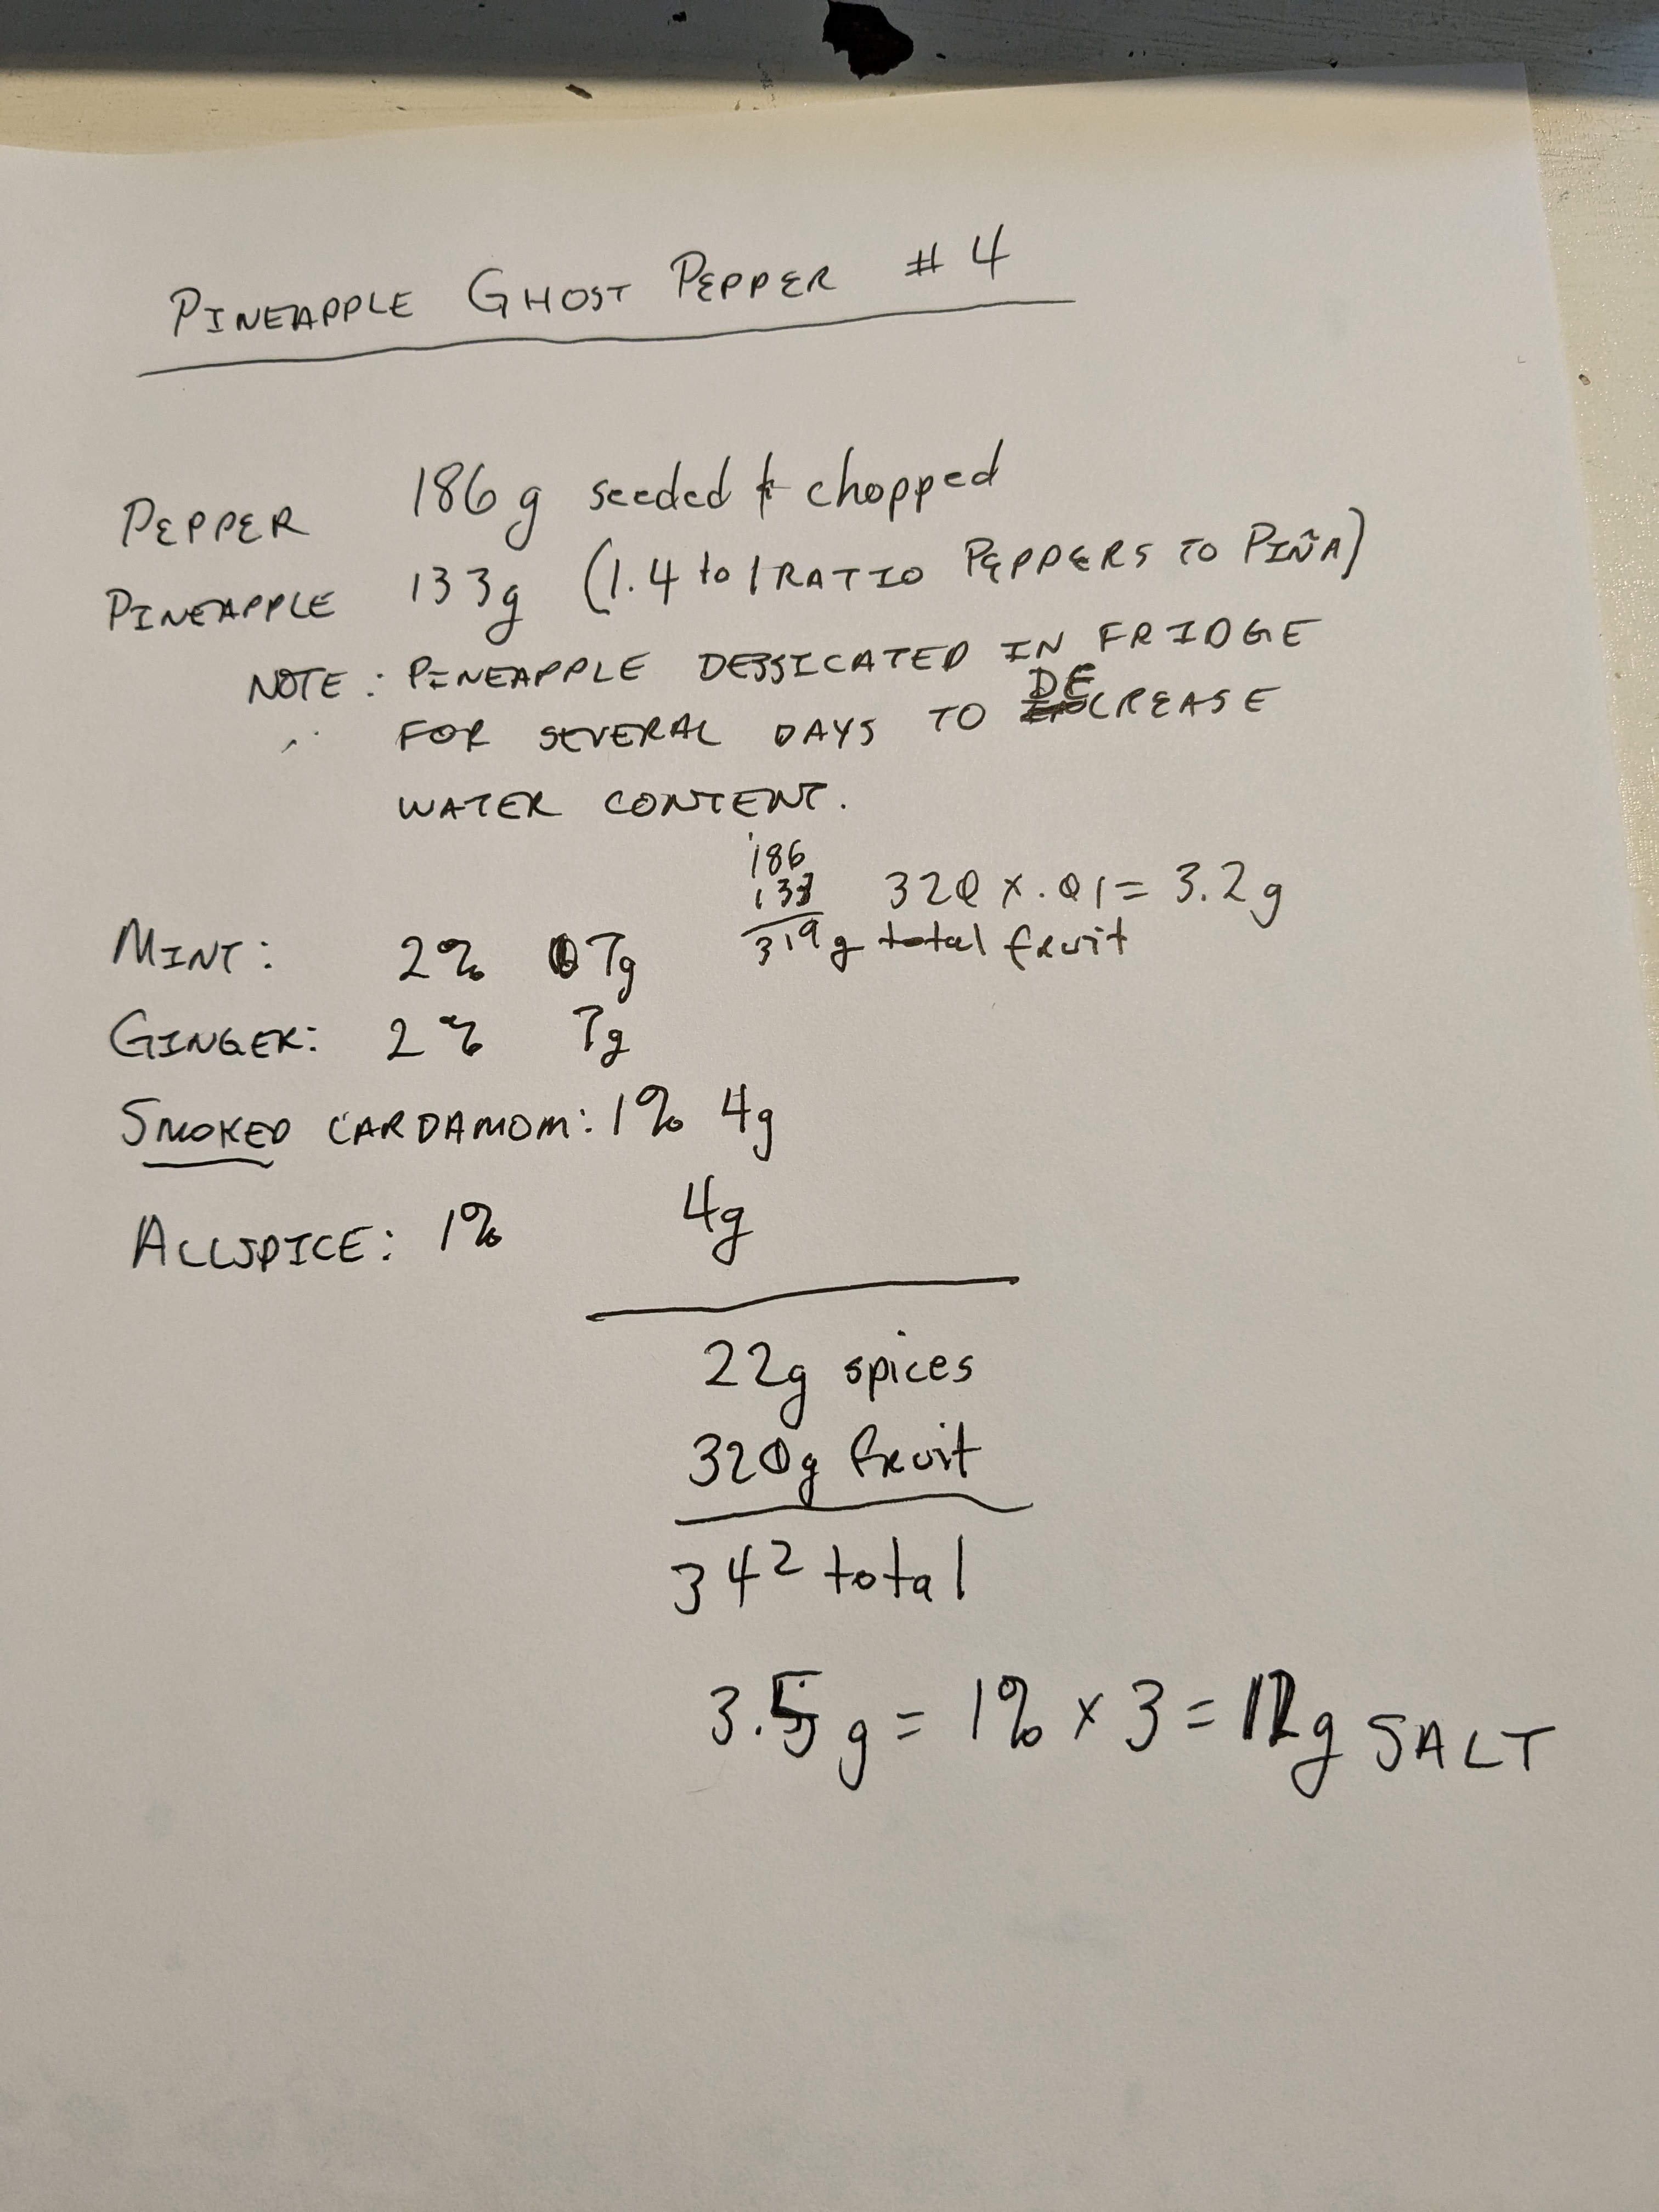 PINEAPPLE GHOST PEPPER #4
PEPPER 186g seeded & chopped
PINEAPPLE 133g (1.4 to 1 RATIO PEPPERS TO PIÑA)
NOTE: PINEAPPLE DESSICATED IN FRIDGE
FOR SEVERAL DAYS TO DECREASE
WATER CONTENT.
186
133 320 x .01 = 3.2g
319g total fruit
MINT: 2% 7g
GINGER: 2% 7g
SMOKED CARDAMOM: 1% 4g
ALLSPICE: 1% 4g
22g spices
320g fruit
342 total
3.5g = 1% x 3 = 12g SALT